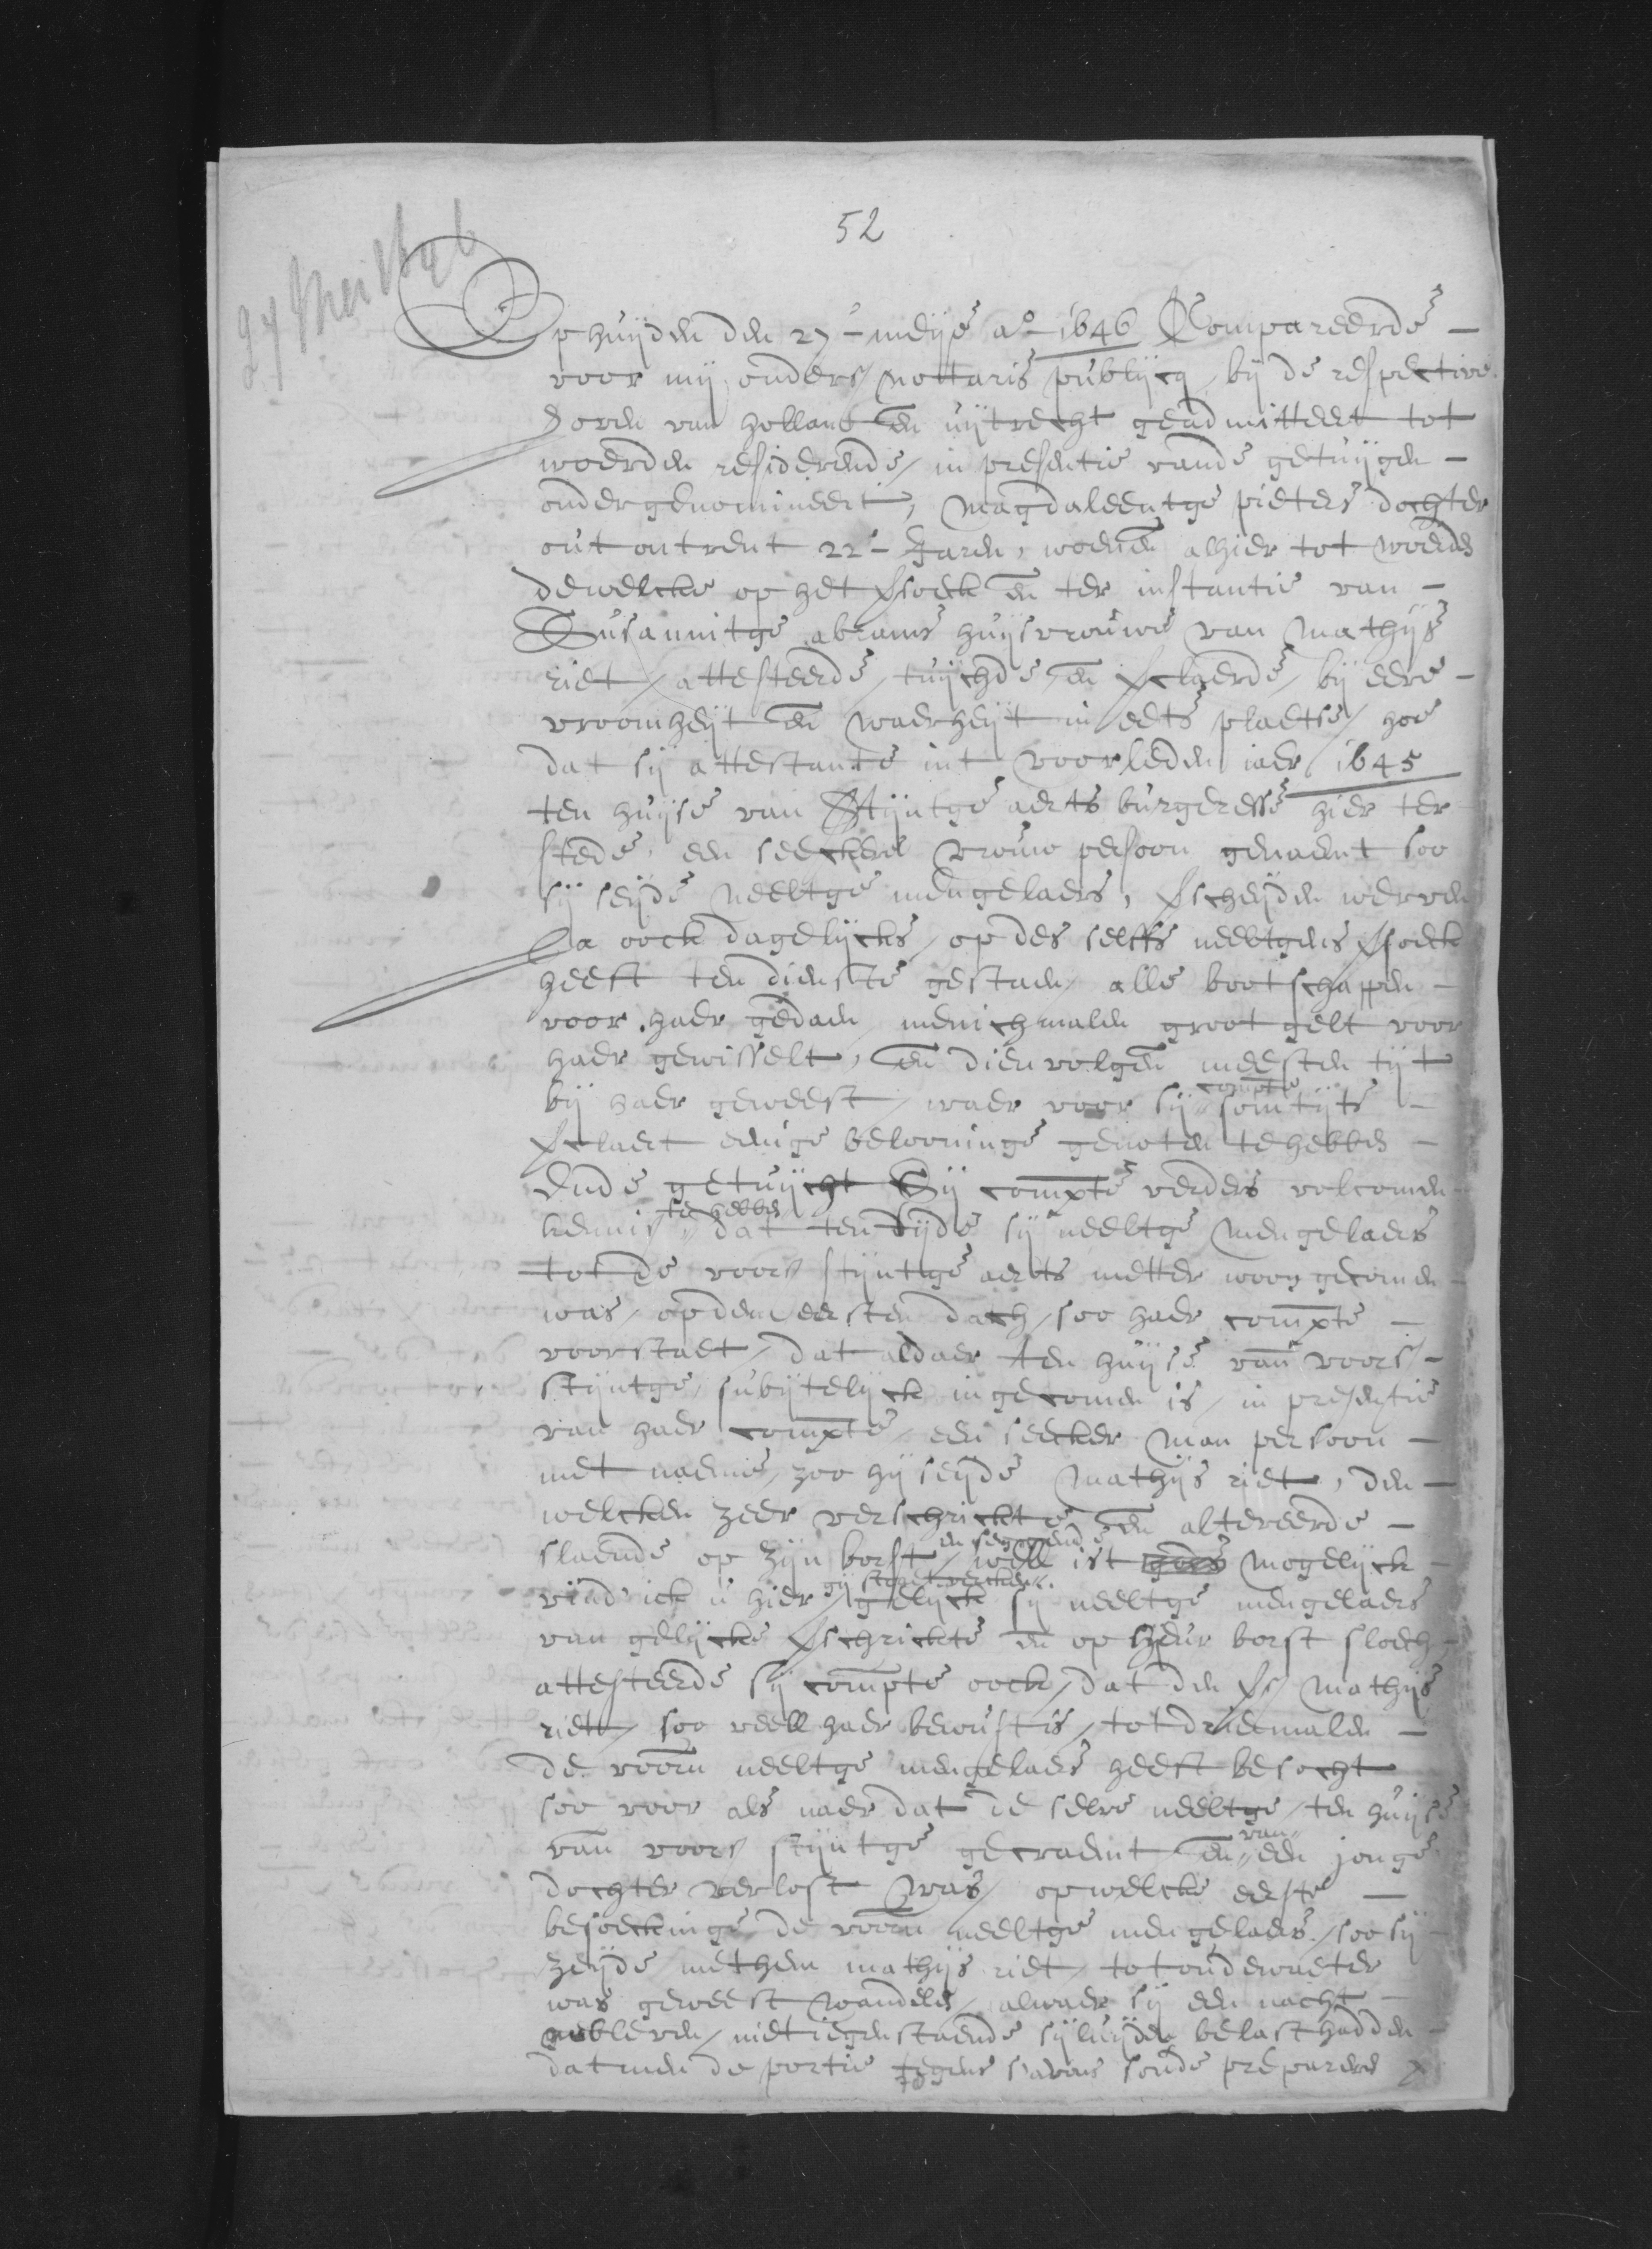 52
27 Mei 1646
Op huijden den 27e meije ao 1646 Compareerde
voor mij onders nottaris publijcq bij de respective
Hoven van hollant en uijtrecht geadmitteert tot
woerden resideerende in presentie vande getuijgen
ondergenomineert, Magdaleentge pieters dochter
out ontrent 22 - Jaren, woenen alhier tot woerden
dewelcke op het vsoeck en ter instantie van
Susannitge abrams huijsvrouwe van Mathijs
riet / attesteerde / tuijchde / en vclaerde / bij eere
vroomheijt en waerheijt in eets plaetse / hoe
dat sij attestante int voorleden jaer 1645
ten huijse van Stijntge aerts burgeresse hier ter
stede, een seeckere vrouw persoon genaemt soo
sij seijde Neeltge mengelaers, vscheijden werven
Ja oock dagelijcks / op des selffs neeltgens vsoeck
heeft ten dienste gestaen / alle bootschappen
voor haer gedaen menichmalen groot gelt voor
haer gewisselt, en dien volgen meesten tijt
bij haer geweest / waer voor sij compte somtijts
vclaert eenige belooninge genoten te hebben
Ende getuijcht Sij compte verders volcomen
kennis te hebben dat ten tijde sij neeltge Mengelaers
tot de voors stijntge aerts metter woon gecomen
was / op den eersten dach / soo haer compte
voorstaet / dat aldaer ten huijse van voors
stijntge, subijtelijck ingecomen is / in presentie
van haer compte / een seecker man persoon
met naeme, zoo hij seijde Mathijs riet, den
welcken zeer verschrickte en altereerde
slaende op zijn borst en seggende well ist mogelijck
vind ick u hier gij gelijck sij neeltge mengelaers
van gelijcke vschrickte en op heur borst sloech
attesteerde sij compte oock / dat den vs Mathijs
riett / soo veell haer bewust is / tot driemalen
de voorn neeltge mengelaers heeft besocht
soo voor als naer dat de selve neeltge / ten huijse
van voors stijntge gecraemt en van een jonge
dochter verlost was / op welcke eerste
besoeckinge de voorn neeltge mengelaers / soo sij
zeijde / met hem mathijs riet / tot oudewaeter
was geweest wandelen / alwaer sij een nacht
bleven / niet tegenstaende sijluijden belast hadden
dat men de portie tegens savons soude prepareren